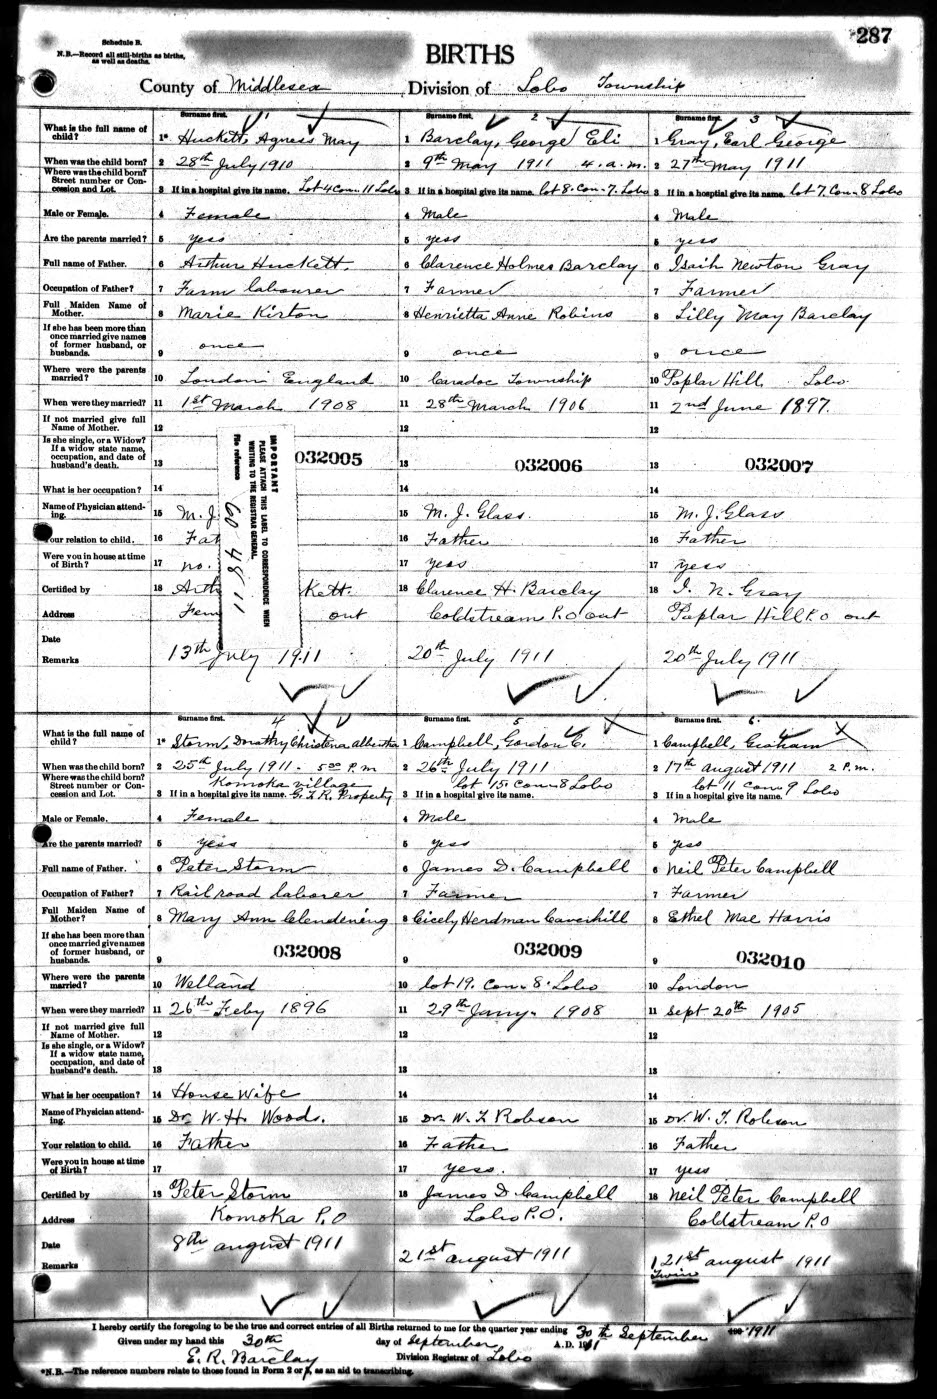 287
Schedule B.
N.B.—Record all still-births as births, as well as deaths.
BIRTHS
County of Middlesex Division of Lobo Township
Surname first. 1 Surname first. 2 Surname first. 3
What is the full name of child? 1* Huckett, Agness May 1 Barclay, George Eli 1 Gray, Earl George
When was the child born? 2 28th July 1910 2 9th May 1911 4. a.m. 2 27th May 1911
Where was the child born? Street number or Concession and Lot. 3 If in a hospital give its name. Lot 4 Con 11 Lobo 3 If in a hospital give its name. lot 8. Con. 7. Lobo 3 If in a hospital give its name. lot 7. Con. 8 Lobo
Male or Female. 4 Female 4 Male 4 Male
Are the parents married? 5 yess 5 yess 5 yess
Full name of Father. 6 Arthur Huckett. 6 Clarence Holmes Barclay 6 Isaih Newton Gray
Occupation of Father? 7 Farm labourer 7 Farmer 7 Farmer
Full Maiden Name of Mother. 8 Marie Kirton 8 Henrietta Anne Robins 8 Lilly May Barclay
If she has been more than once married give names of former husband, or husbands. 9 once 9 once 9 once
Where were the parents married? 10 London England 10 Caradoc Township 10 Poplar Hill, Lobo
When were they married? 11 1st March 1908 11 28th March 1906 11 2nd June 1897.
If not married give full Name of Mother. 12 12 12
Is she single, or a Widow? If a widow state name, occupation, and date of husband's death. 13 032005 13 032006 13 032007
What is her occupation? 14 14 14
Name of Physician attending. 15 M. J. 15 M. J. Glass. 15 M. J. Glass
Your relation to child. 16 Fat 16 Father 16 Father
Were you in house at time of Birth? 17 no. 17 yess 17 yess
Certified by 18 Arth Kett. 18 Clarence H. Barclay 18 I. N. Gray
Address Fern out Coldstream P.O out Poplar Hill P.O out
Date
Remarks 13th July 1911 20th July 1911 20th July 1911
IMPORTANT
PLEASE ATTACH THIS LABEL TO CORRESPONDENCE WHEN
WRITING TO THE REGISTRAR GENERAL
File reference 60-4811
Surname first. 4 Surname first. 5 Surname first. 6.
What is the full name of child? 1* Storm, Dorathy Christena Albertha 1 Campbell, Gordon C. 1 Campbell, Graham
When was the child born? 2 25th July 1911. 5.00 P.m 2 26th July 1911 2 17th august 1911 2 P.m.
Where was the child born? Street number or Concession and Lot. 3 If in a hospital give its name. Komoka village G.T.R. Property 3 If in a hospital give its name. lot 15 Con. 8 Lobo 3 If in a hospital give its name. lot 11 con 9 Lobo
Male or Female. 4 Female 4 Male 4 Male
Are the parents married? 5 yess 5 yess 5 yess
Full name of Father. 6 Peter Storm 6 James D. Campbell 6 Neil Peter Campbell
Occupation of Father? 7 Railroad laborer 7 Farmer 7 Farmer
Full Maiden Name of Mother? 8 Mary Ann Clendening 8 Cicely Herdman Caverhill 8 Ethel Mae Harris
If she has been more than once married give names of former husband, or husbands. 9 032008 9 032009 9 032010
Where were the parents married? 10 Welland 10 lot 19. Con. 8. Lobo 10 London
When were they married? 11 26th Feby 1896 11 29th Jany. 1908 11 Sept 20th 1905
If not married give full Name of Mother. 12 12 12
Is she single, or a Widow? If a widow state name, occupation, and date of husband's death. 13 13 13
What is her occupation? 14 House Wife 14 14
Name of Physician attending. 15 Dr. W. H. Woods. 15 Dr. W. F. Robson 15 Dr. W. F. Robson
Your relation to child. 16 Father 16 Father 16 Father
Were you in house at time of Birth? 17 17 yess. 17 yess
Certified by 18 Peter Storm 18 James D Campbell 18 Neil Peter Campbell
Address Komoka P.O Lobo P.O. Coldstream P.O
Date 8th august 1911 21st august 1911 21st august 1911
Remarks Twins
I hereby certify the foregoing to be the true and correct entries of all Births returned to me for the quarter year ending 30th September 1911
Given under my hand this 30th day of September A.D. 1911
E. R. Barclay Division Registrar of Lobo
*N.B.—The reference numbers relate to those found in Form 2 or, as an aid to transcribing.